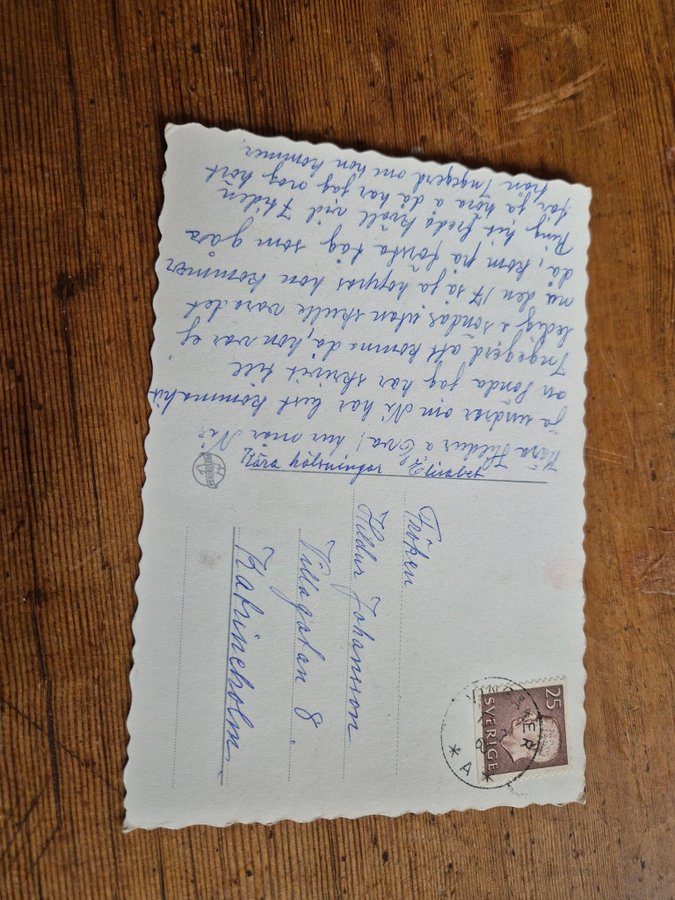 Kära Hildur o Eva! hur mår Ni?
Ja undrar om Ni har lust komma hit
en Sönda jag har skrivit till
Ingegerd att komma då, hon var ej
ledig a söndas, utan skulle vara det
nu den 17 så ja hoppas hon kommer
då, kom på första tåg som går
Ring hit freda kväll vid 7tiden
får ja höra o då har jag nog kort
från Ingegerd om hon kommer.
Kära hälsningar
Fröken
Hildur Johansson
Villagatan 8.
Katrineholm
SVERIGE
25
VING ER
* A *